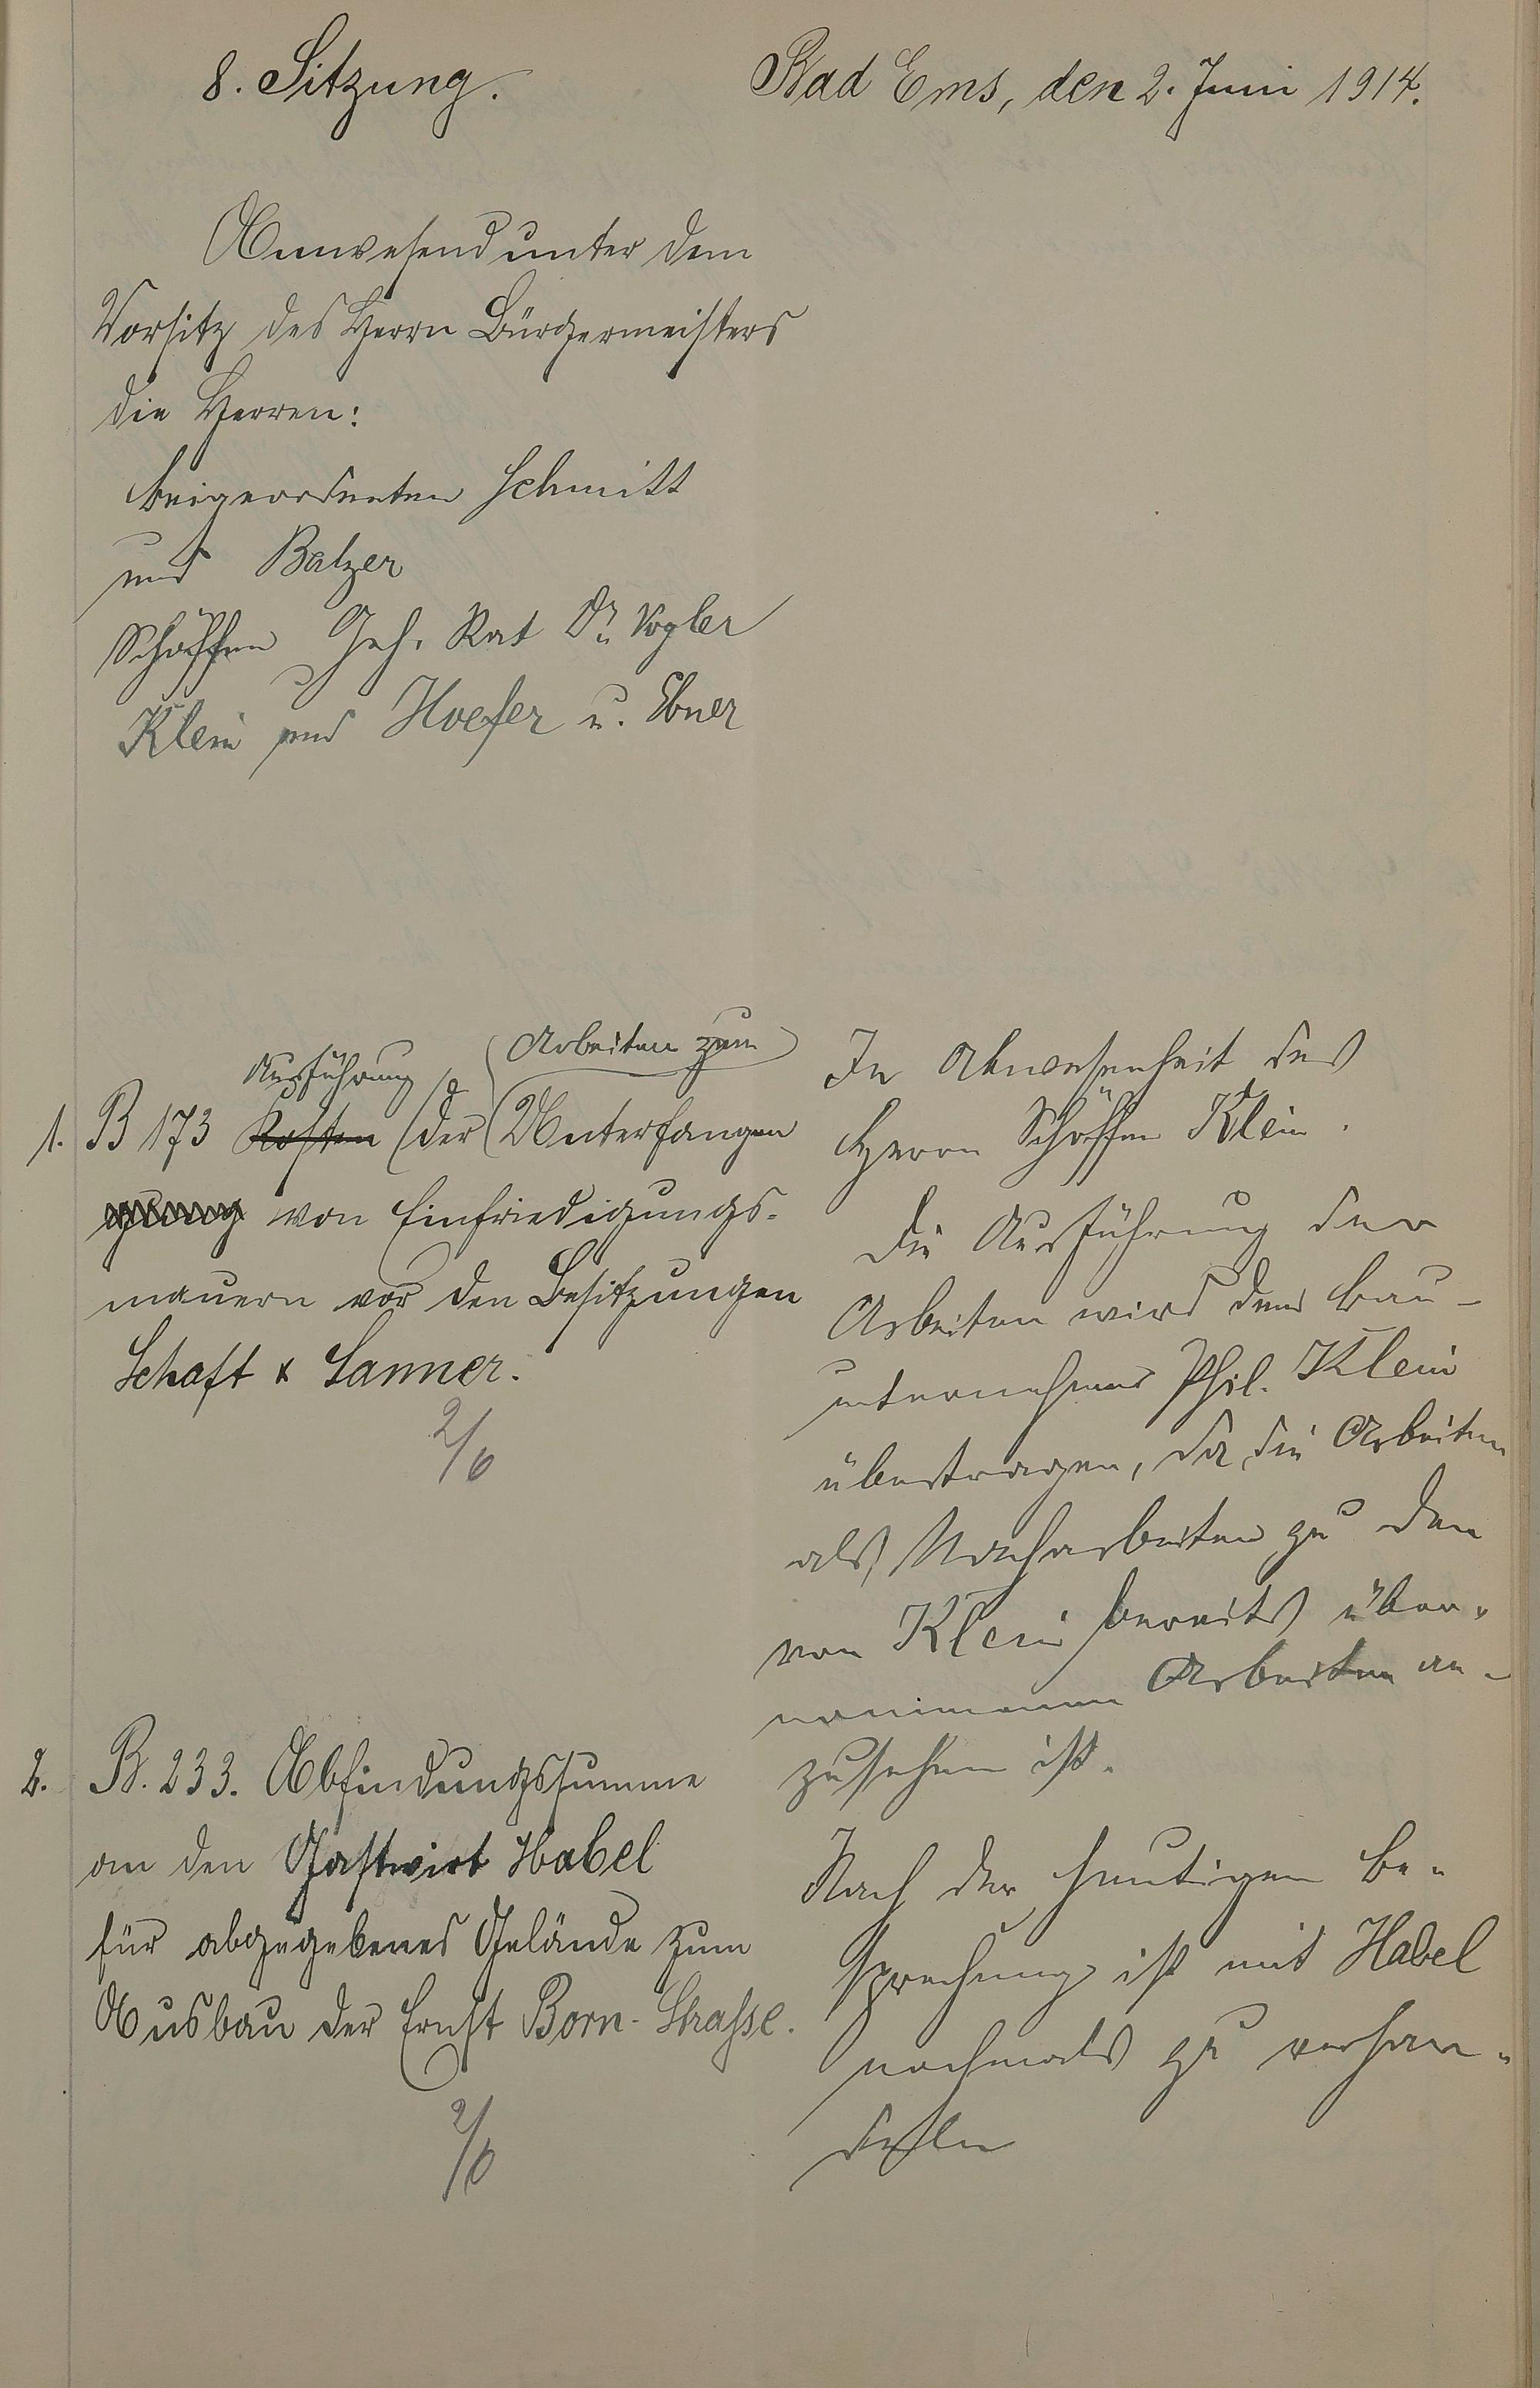 8. Sitzung.
Bad Ems, den 2. Juni 1914.
Anwesend unter dem
Vorsitz des Herrn Bürgermeisters
die Herren:
Beigeordneten Schmitt
und Balzer
Schöffen Geh. Rat Dr. Vogler
Klein und Hoefer u. Ebner
Ausführung
Arbeiten zum
1. B 173 Kosten der Unterfangen
gung von Einfriedigungs-
mauern vor den Besitzungen
Schaft & Sanner.
2/6
In Abwesenheit des
Herrn Schöffen Klein.
Die Ausführung der
Arbeiten wird dem Bau-
unternehmer Phil. Klein
übertragen, da die Arbeiten
als Nacharbeiten zu den
von Klein bereits über-
nommenen Arbeiten an-
zusehen ist.
2. B. 233. Abfindungssumme
an den Gastwirt Habel
für abgegebenes Gelände zum
Ausbau der Ernst Born-Strasse.
2/6
Nach der heutigen Be-
sprechung ist mit Habel
nochmals zu verhan-
deln